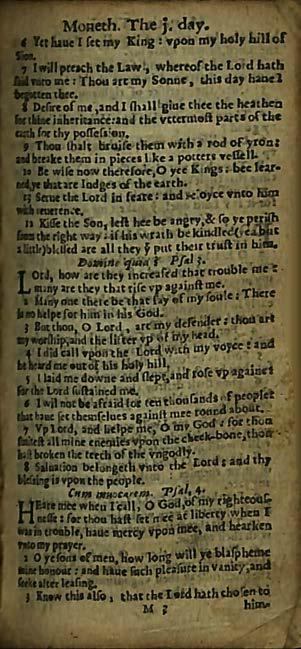 Moneth. The j. day.
6 Yet haue I set my King: vpon my holy hill of
Sion.
7 I will preach the Law, whereof the Lord hath
said vnto me: Thou art my Sonne, this day haue I
begotten thee.
8 Desire of me, and I shall giue thee the heathen
for thine inheritance: and the vttermost parts of the
earth for thy possession.
9 Thou shalt bruise them with a rod of yron:
and breake them in pieces like a potters vessell.
10 Be wise now therefore, O yee Kings: bee lear-
ned, ye that are Iudges of the earth.
11 Serue the Lord in feare: and reioyce vnto him
with reuerence.
12 Kisse the Son, lest hee be angry, & so ye perish
from the right way: if his wrath be kindled (yea but
a little) blessed are all they ẏ put their trust in him.
Domine quid? Psal. 3.
LOrd, how are they increased that trouble me:
many are they that rise vp against me.
2 Many one there be that say of my soule: There
is no helpe for him in his God.
3 But thou, O Lord, art my defender: thou art
my worship, and the lifter vp of my head.
4 I did call vpon the Lord with my voyce: and
he heard me out of his holy hill.
5 I laid me downe and slept, and rose vp again:
for the Lord sustained me.
6 I wil not be afraid for ten thousands of people:
that haue set themselues against mee round about.
7 Vp Lord, and helpe me, O my God: for thou
smitest all mine enemies vpon the cheek-bone, thou
hast broken the teeth of the vngodly.
8 Saluation belongeth vnto the Lord: and thy
blessing is vpon the people.
Cum inuocarem. Psal. 4.
HEare mee when I call, O God, of my righteous-
nesse: for thou hast set mee at liberty when I
was in trouble, haue mercy vpon mee, and hearken
vnto my prayer.
2 O ye sons of men, how long will ye blaspheme
mine honour: and haue such pleasure in vanity, and
seeke after leasing.
3 Know this also, that the Lord hath chosen to
M 3 him-